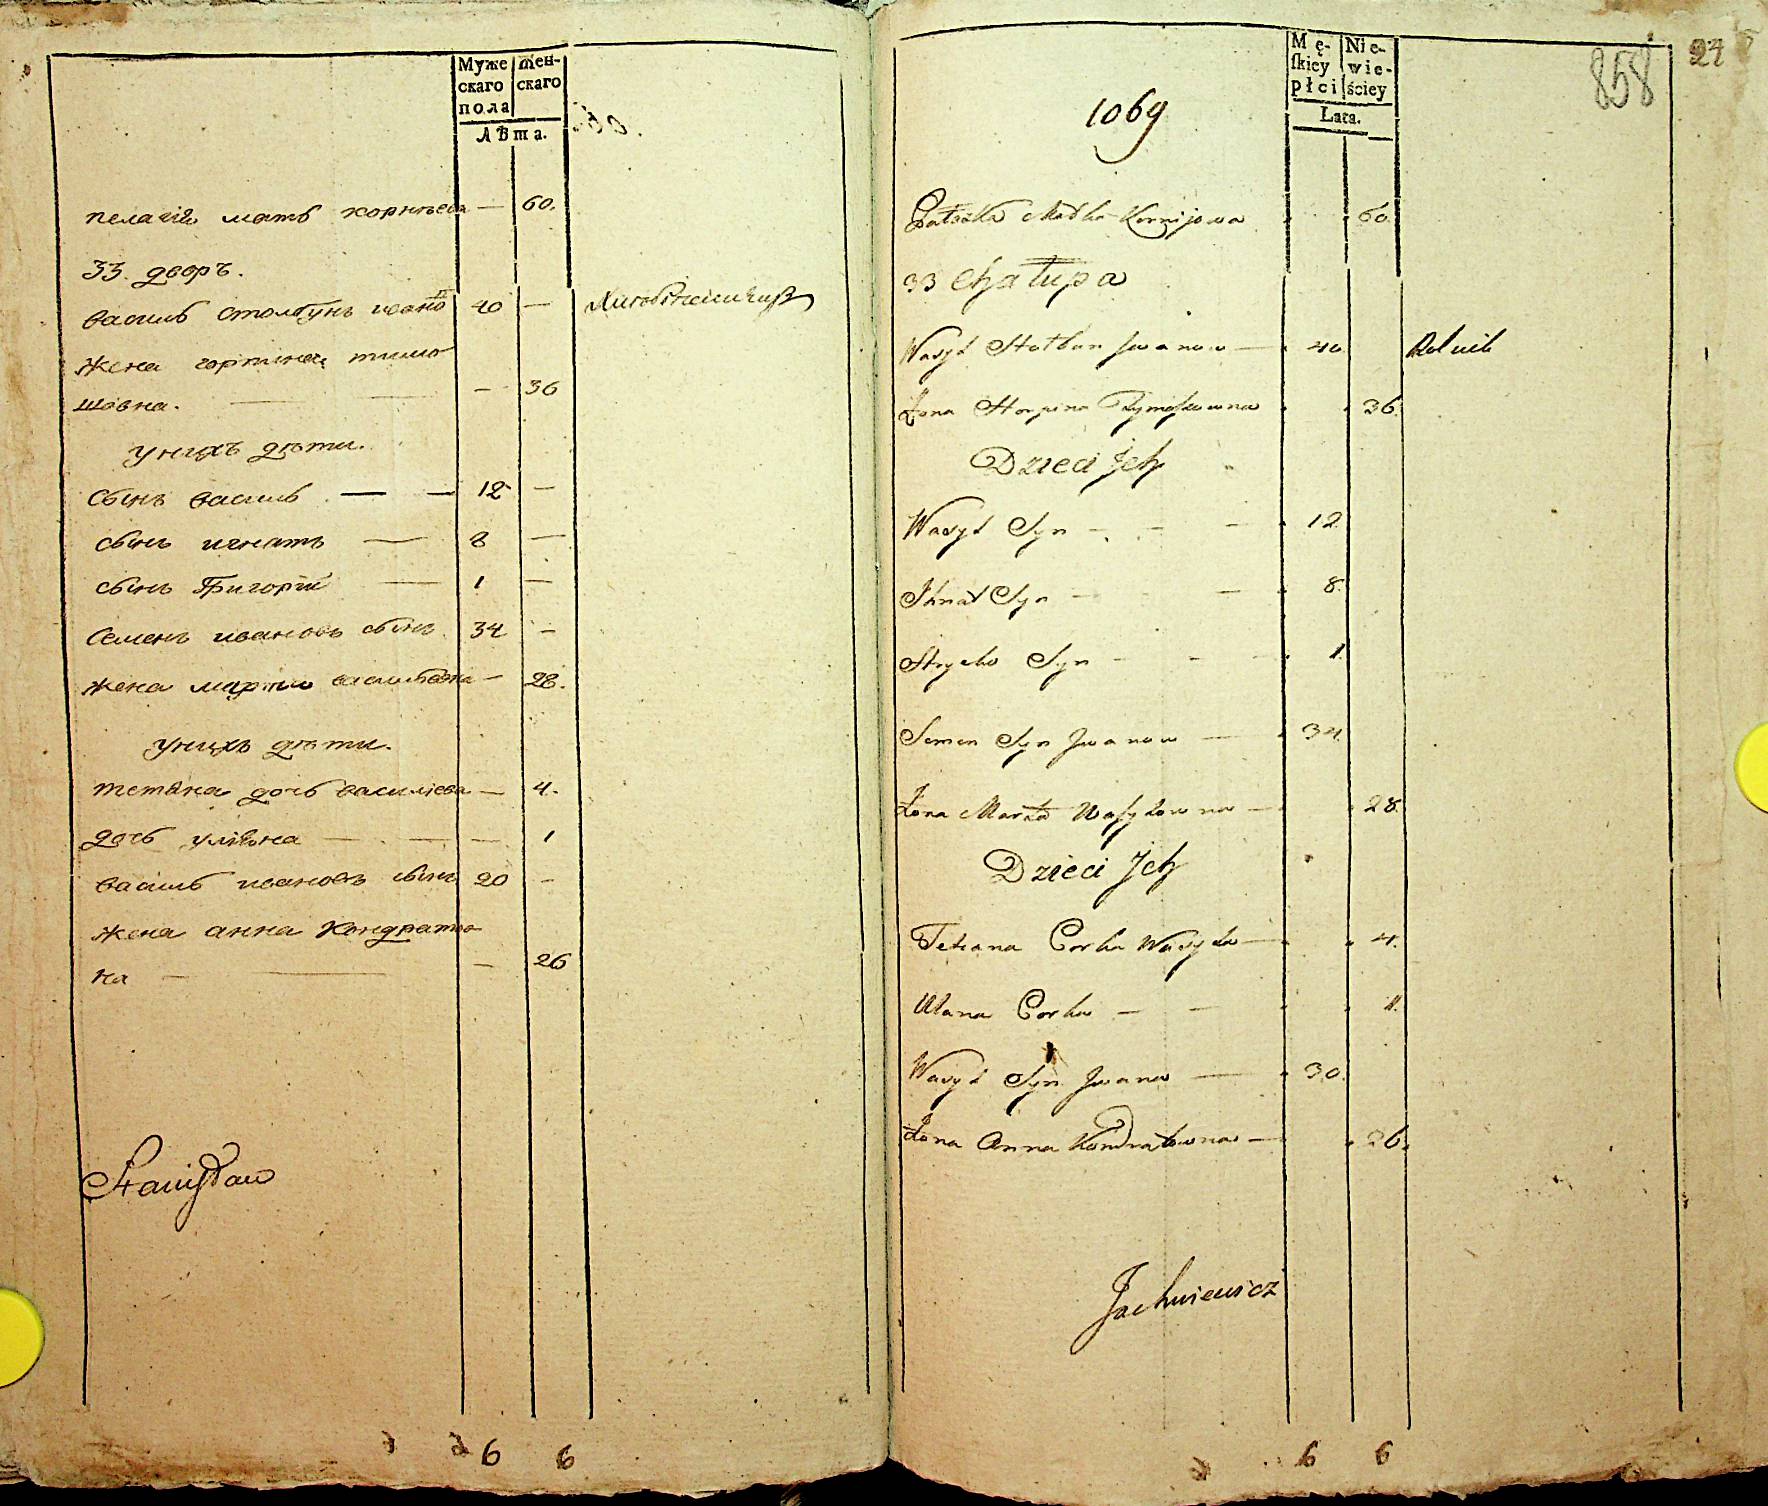 Муже
скаго
пола
Жен-
скаго
Лѣта.
пелагія мать корнѣева — 60.
33 дворъ.
василь столбунъ ивано 40 —
жена горпина тимо
шовна. — — 36
у нихъ дѣти.
сынъ василь — — 12 —
сынъ игнатъ — 8 —
сынъ Григорій — 1 —
семенъ ивановъ сынъ 34 —
жена марта васильевна — 28.
у нихъ дѣти.
тетяна дочь василіева — 4.
дочь уліяна — — 1
василь ивановъ сынъ 20 —
жена анна кондратов
на — — — 26
Stanisław
6 6
858
24
Mę-
ſkiey
płci
Nie-
wie-
ściey
Lata.
1069
Matka Kornijowa 60
33 Chałupa
Wasyl Stołbun Jwanow — 40 Rolnik
Żona Horpina Tymoszowna 36.
Dzieci Jch
Wasyl Syn — — — 12
Ihnat Syn — — 8.
Hryćko Syn — — — 1.
Semen Syn Jwanow — 34
Żona Marta Wasylowna — 28.
Dzieci Jch
Tetiana Corka Wasyla — 4.
Ulana Corka — — 1.
Wasyl Syn Jwana — 30.
Żona Anna Kondratowna — 26.
Jachniewicz
6 6